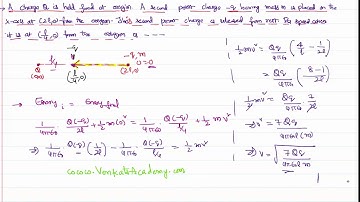 A charge Q is held fixed at origin. A second point charge -q having mass m is placed on the
x-axis at (2l,0) from the origin. This second point charge is released from rest. Its speed when
it is at (l/4,0) from the origin is ---
l/4
-q, m
Q
(0,0)
(l/4,0)
(2l,0)
U=0
→ Energy i = Energy final
1/4πε₀ · Q(-q)/2l + 1/2 m(0)² = 1/4πε₀ · Q(-q)/l/4 + 1/2 mv²
⇒ 1/4πε₀ · Q(-q) (1/2l) - 1/4πε₀ · Q(-q)/l/4 = 1/2 mv²
www.VenkatsAcademy.com
1/2 mv² = Qq/4πε₀ (4/l - 1/2l)
= Qq/4πε₀ (8-1/2l)
1/2 mv² = Qq/4πε₀ 7/2l
⇒ v² = 7Qq/4πε₀l(m)
⇒ v = √7Qq/4πε₀lm